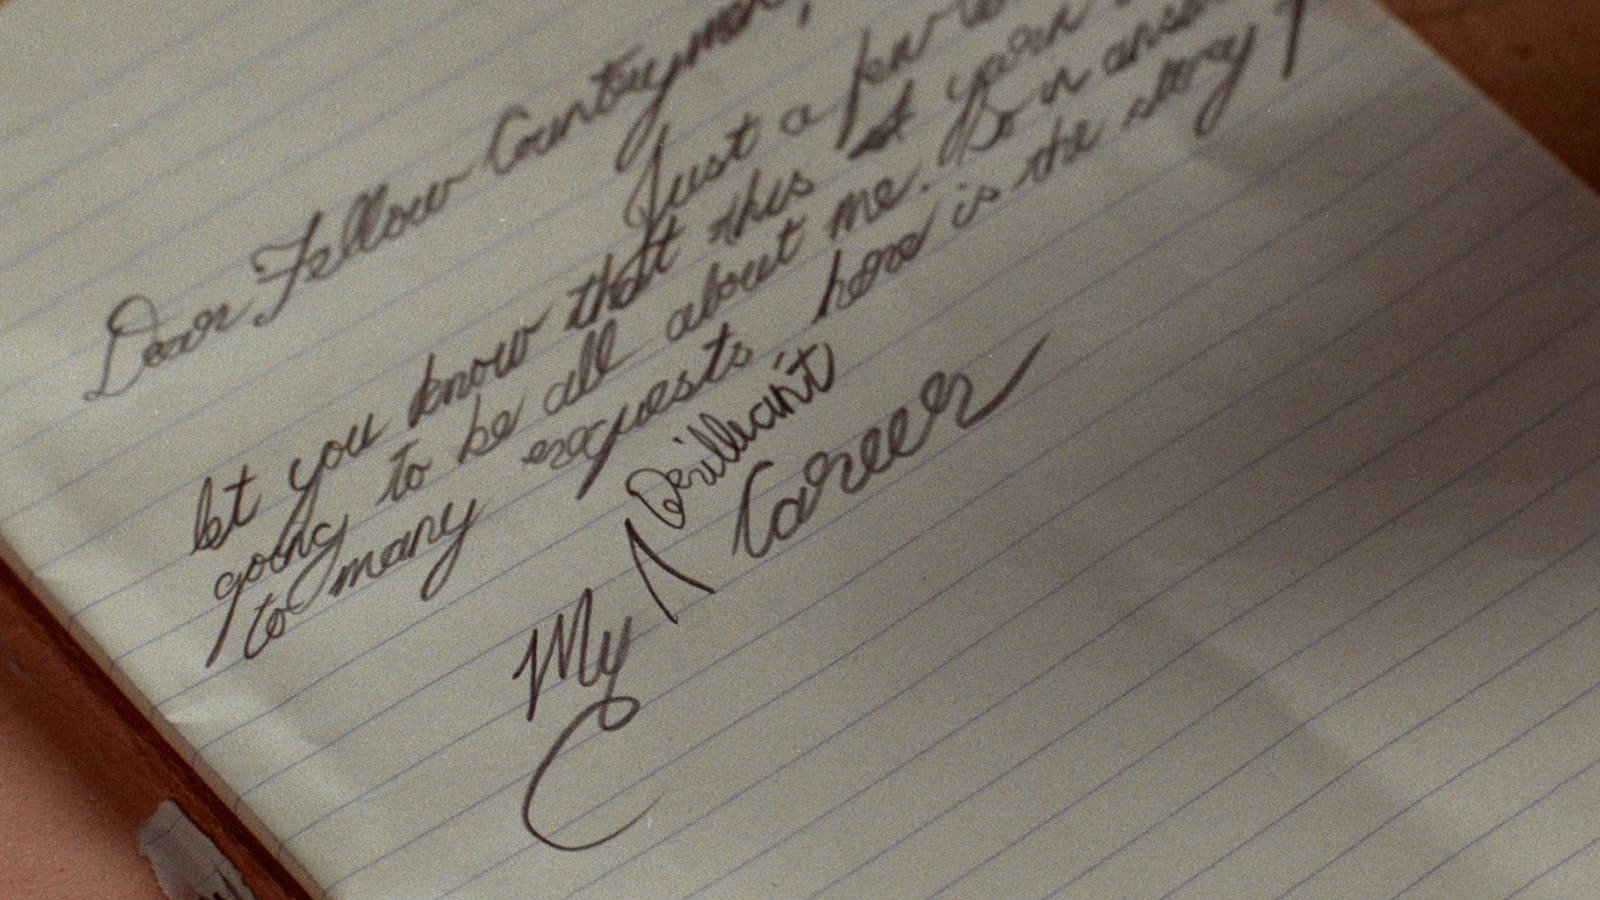 Dear Fellow Countrymen,
Just a few
let you know that this yarn
going to be all about me. So in
to many requests here is the story
Brilliant
My Career
C